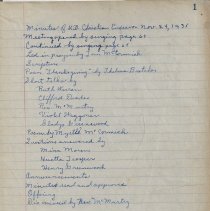 1
Minutes of K.B. Christian Endeavor Nov. 29, 1931
Meeting opened by singing page 61
Continued by singing page 61
Led in prayer by Tom McCormick
Scripture
Poem "Thanksgiving" by Thelma
Short talks by
Ruth
Clifford Rhodes
Rev. McMartry
Violet
Gladys Greenwood
Poem by Myrtle McCormick
Questions answered by
Mina Morris
Huetta Troopers
Henry Greenwood
Announcements
Minutes read and approved
Offering
Dismissed by Rev. McMartry